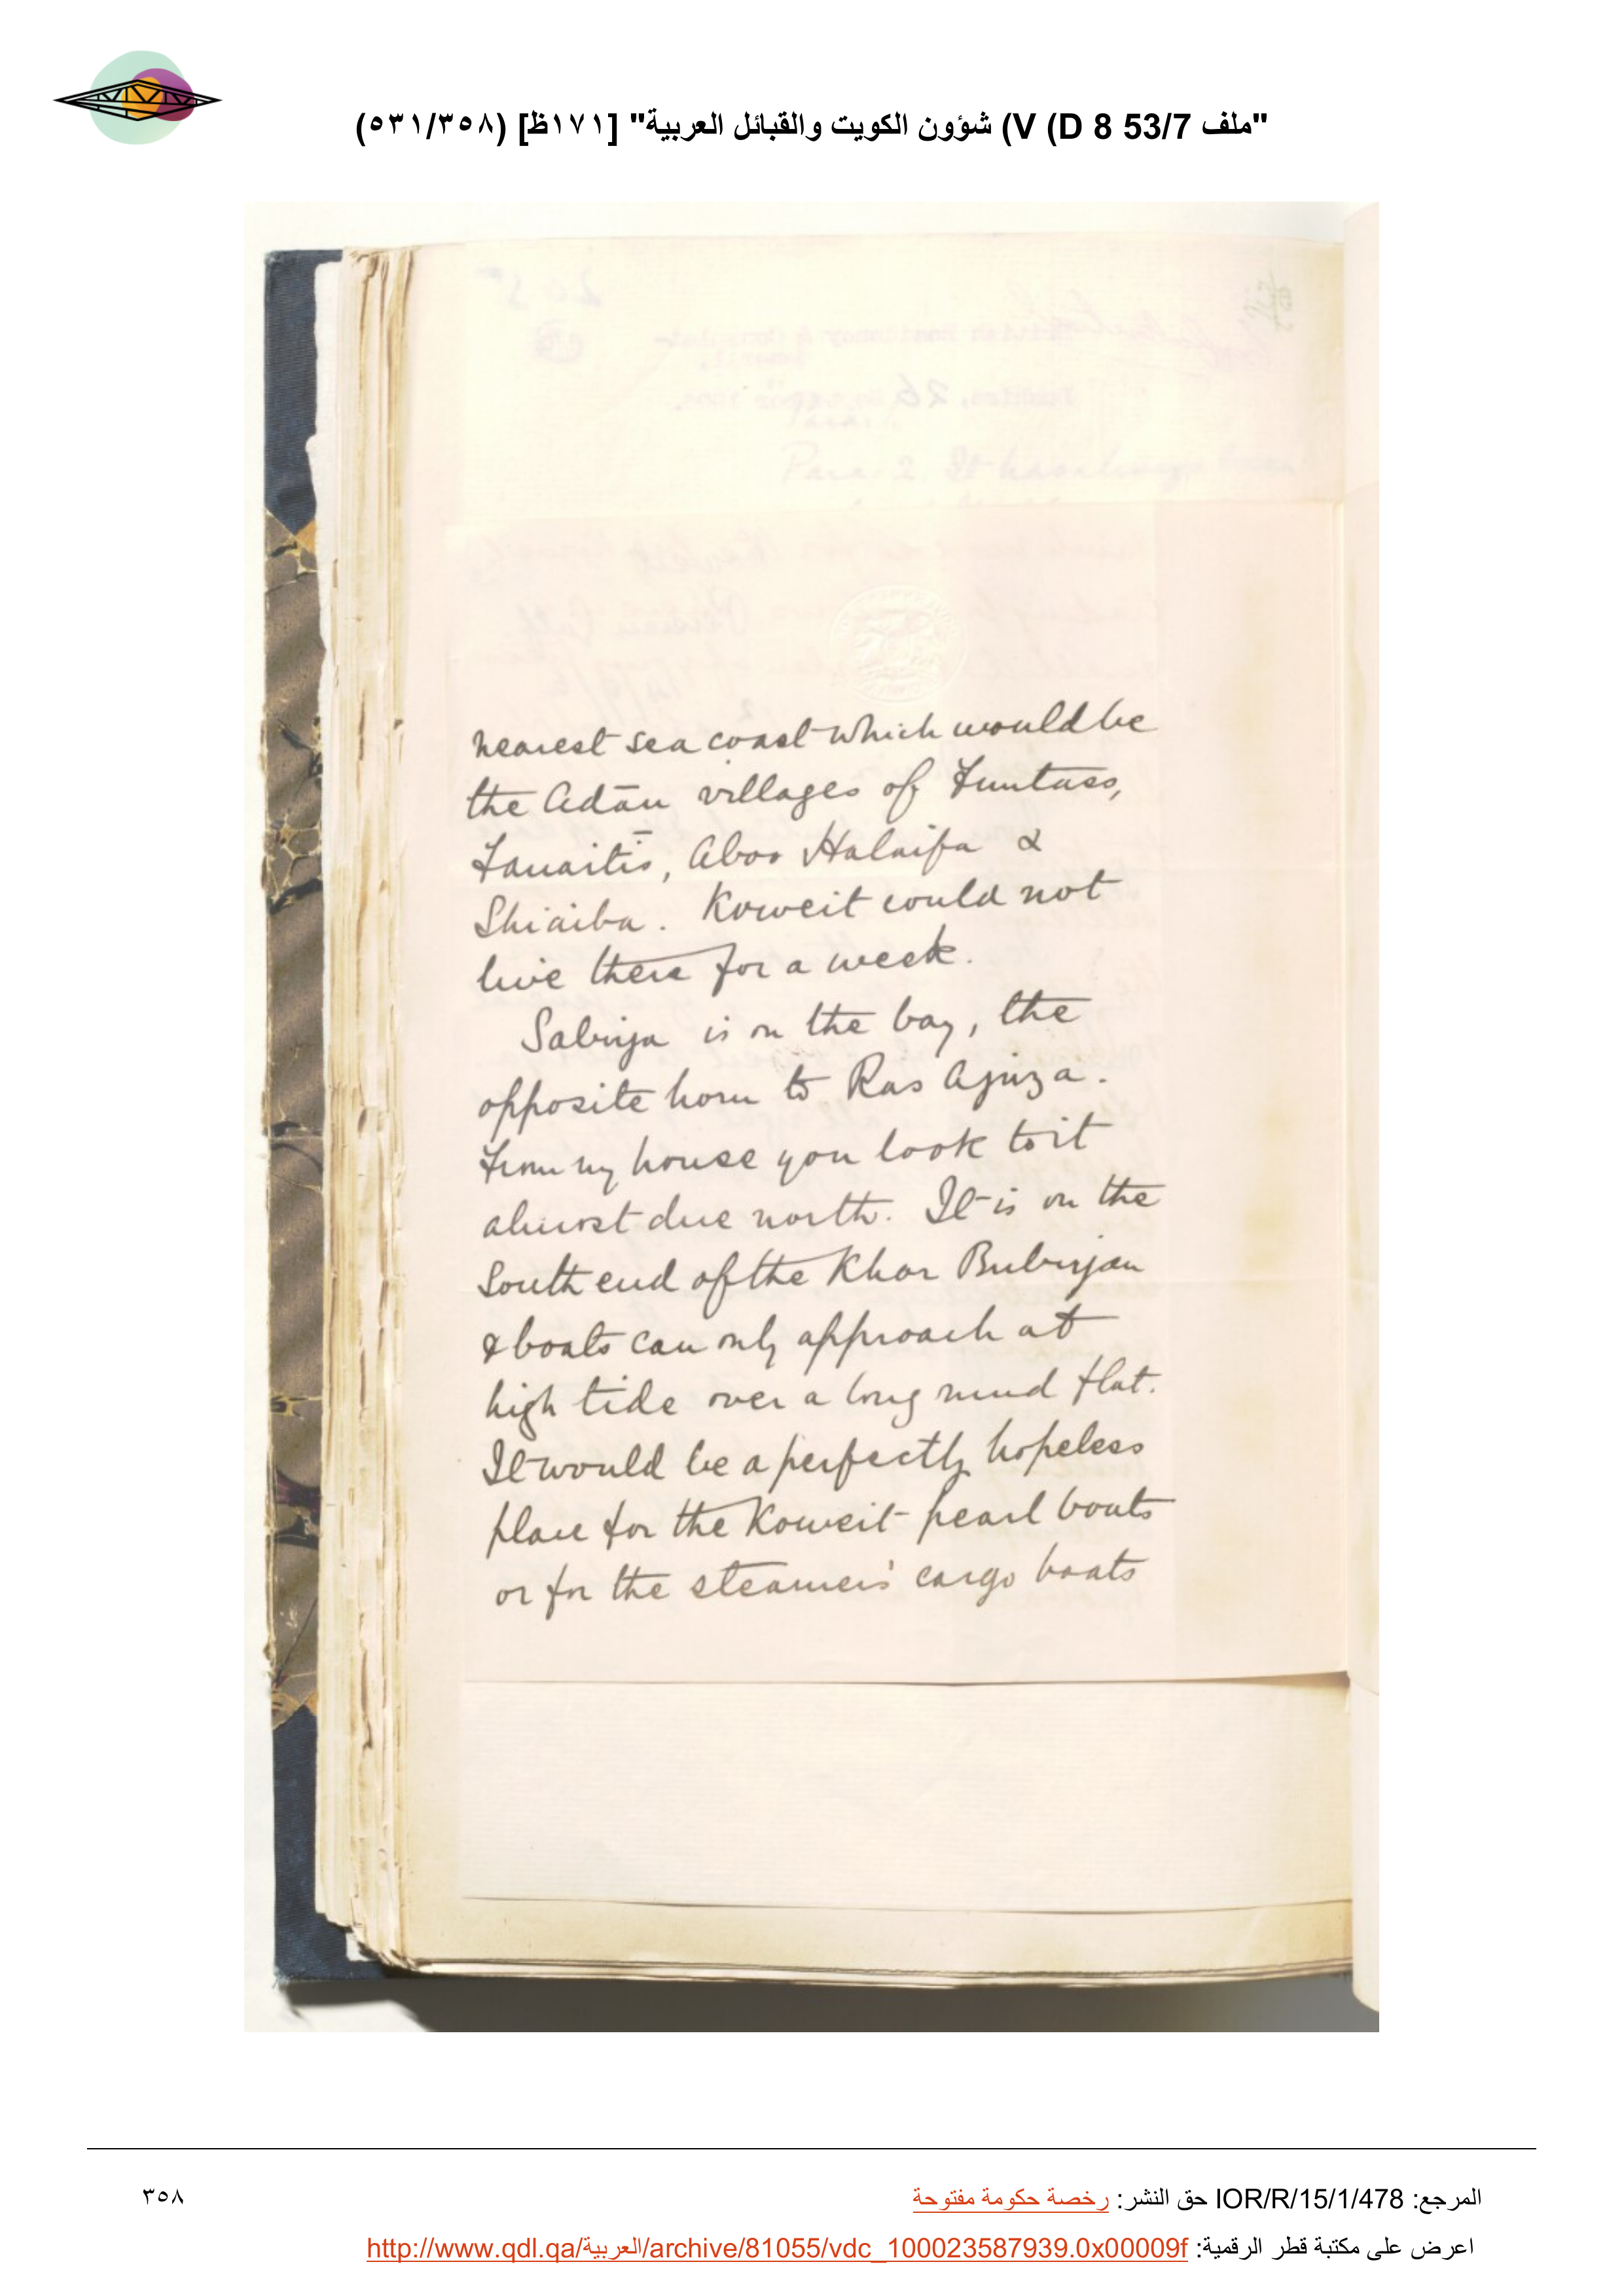 "ملف 53/7 D 8) V) شؤون الكويت والقبائل العربية" [١٧١ظ] (٥٣١/٣٥٨)
nearest sea coast which would be
the Adān villages of Funtass,
Fanaitīs, Aboo Halaifa &
Shiaiba. Koweit could not
live there for a week.
Sabiya is on the bay, the
opposite horn to Ras Ajuza.
From my house you look to it
almost due north. It is on the
South end of the Khor Bubiyan
& boats can only approach at
high tide over a long mud flat.
It would be a perfectly hopeless
place for the Koweit pearl boats
or for the steamers' cargo boats
المرجع: IOR/R/15/1/478 حق النشر: رخصة حكومة مفتوحة
٣٥٨
اعرض على مكتبة قطر الرقمية: http://www.qdl.qa/العربية/archive/81055/vdc_100023587939.0x00009f